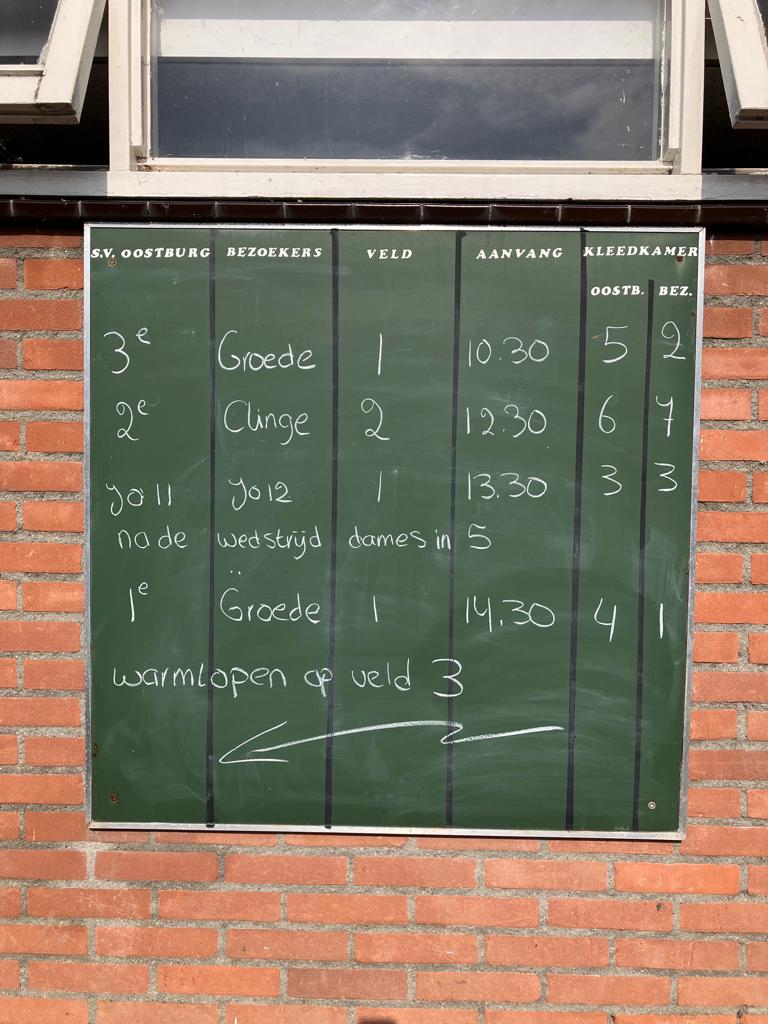 S.V. OOSTBURG BEZOEKERS VELD AANVANG KLEEDKAMER
OOSTB. BEZ.
3e Groede 1 10.30 5 2
2e Clinge 2 12.30 6 7
yo11 yo12 1 13.30 3 3
na de wedstrijd dames in 5
1e Groede 1 14.30 4 1
warmlopen op veld 3